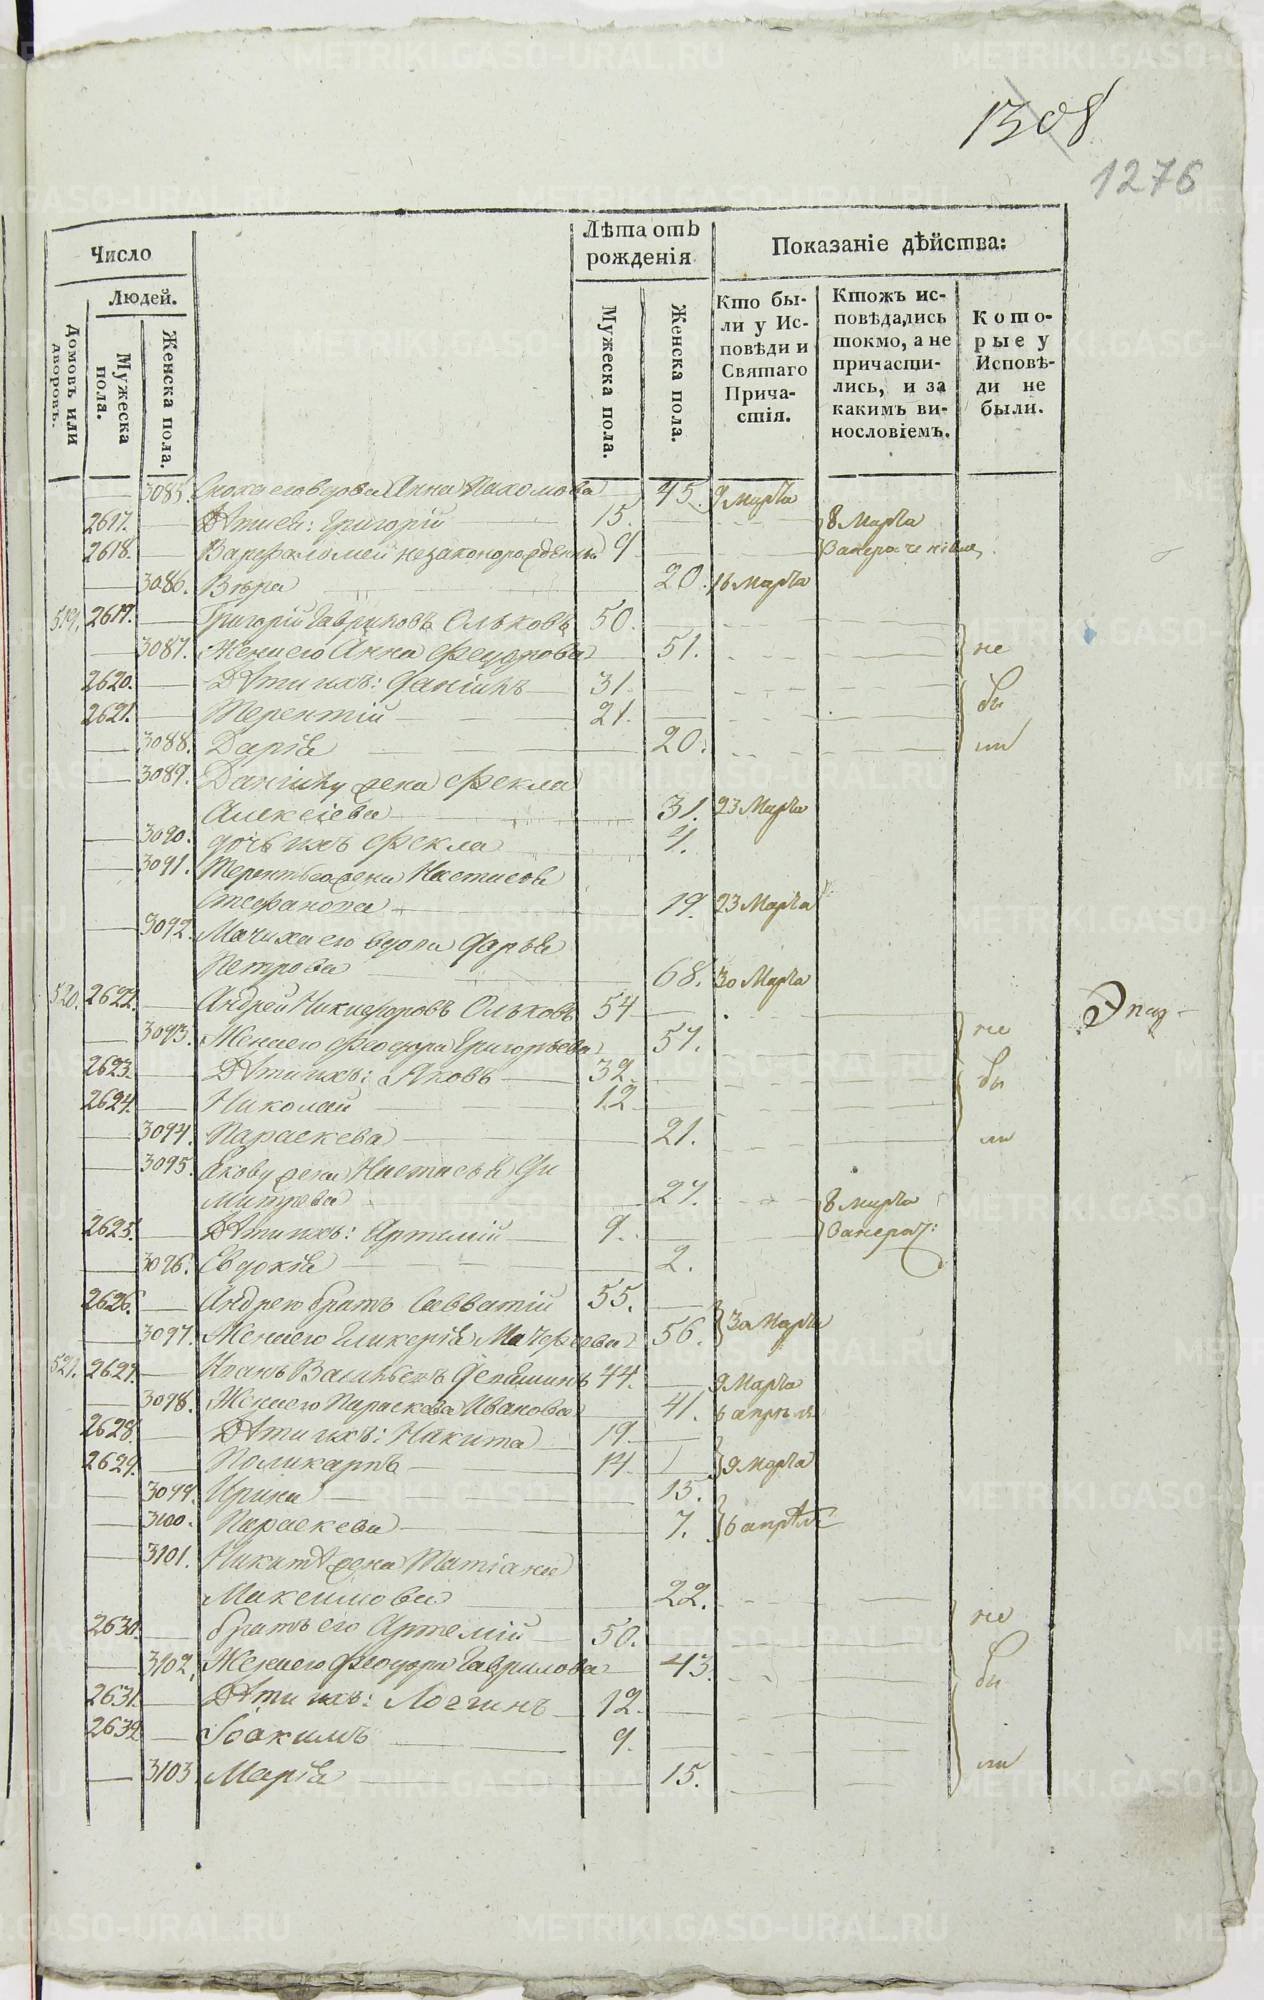 1308
1276
Число
Лѣта отъ рожденія
Показаніе дѣйства:
Людей.
Домовъ или дворовъ.
Мужеска пола.
Женска пола.
Мужеска пола.
Женска пола.
Кто были у Исповѣди и Святаго Причастія.
Ктожъ исповѣдались токмо, а не причастились, и за какимъ винословіемъ.
Которые у Исповѣди не были.
3085. Сноха его вдова Анна Пахомова 45. 9 Марта
2617. Дѣти ея: Григорій 15. 8 Марта
2618. Варфаломей незаконорожденны 9
3086. Вѣра 20. 16 Марта
519. 2619. Григорій Гавриловъ Ольковъ 50.
3087. Жена его Анна Феодорова 51. не
2620. Дѣти ихъ: Даніилъ 31. бы
2621. Терентій 21.
3088. Дарія 20. ли
3089. Даніилу жена Фекла
Алексіева 31. 23 Марта
3090. дочь ихъ Фекла
3091. Терентью жена Настасья
Стефанова 19. 23 Марта
3092. Мачиха его вдова Дарья
Петрова 68. 30 Марта
520. 2622. Андрей Никифоровъ Ольковъ 54
3093. Жена его Феодора Григорьева 57. не
2623. Дѣти ихъ: Яковъ 32. бы
2624. Николай 12
3094. Параскева 21. ли
3095. Якову жена Настасья Ди
митрева 27. 8 марта
2625. Дѣти ихъ: Артемій 9.
3096. Евдокія 2.
2626. Андрею братъ Савватій 55. 30 Марта
3097. Жена его Гликерія Матфеева 56.
521. 2627. Иванъ Васильевъ 44. 9 Марта
3098. Жена его Параскева Иванова 41. 6 апреля
2628. Дѣти ихъ: Никита 19.
2629. Поликарпъ 14. 9 Марта
3099. Ирина 13.
3100. Параскева 7. 6 апрѣля
3101. Никитѣ жена Татіана
Максимова 22.
2630. братъ его Артемій 50. не
3102. Жена его Феодора Гаврилова 43 бы
2631. Дѣти ихъ: Логгинъ 12.
2632 Іоакимъ 9.
3103 Марія 15. ли